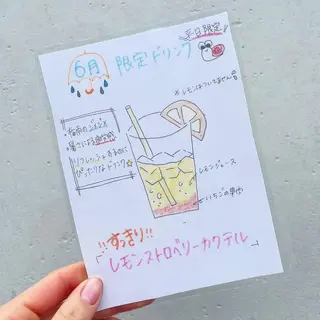 平日限定
6月 限定ドリンク
※レモンはついてません
梅雨のジメジメ
暑さによる疲労感
リフレッシュするのに
ぴったりなドリンク☆
レモンジュース
いちごの果肉
!!すっきり!!
「レモンストロベリーカクテル」